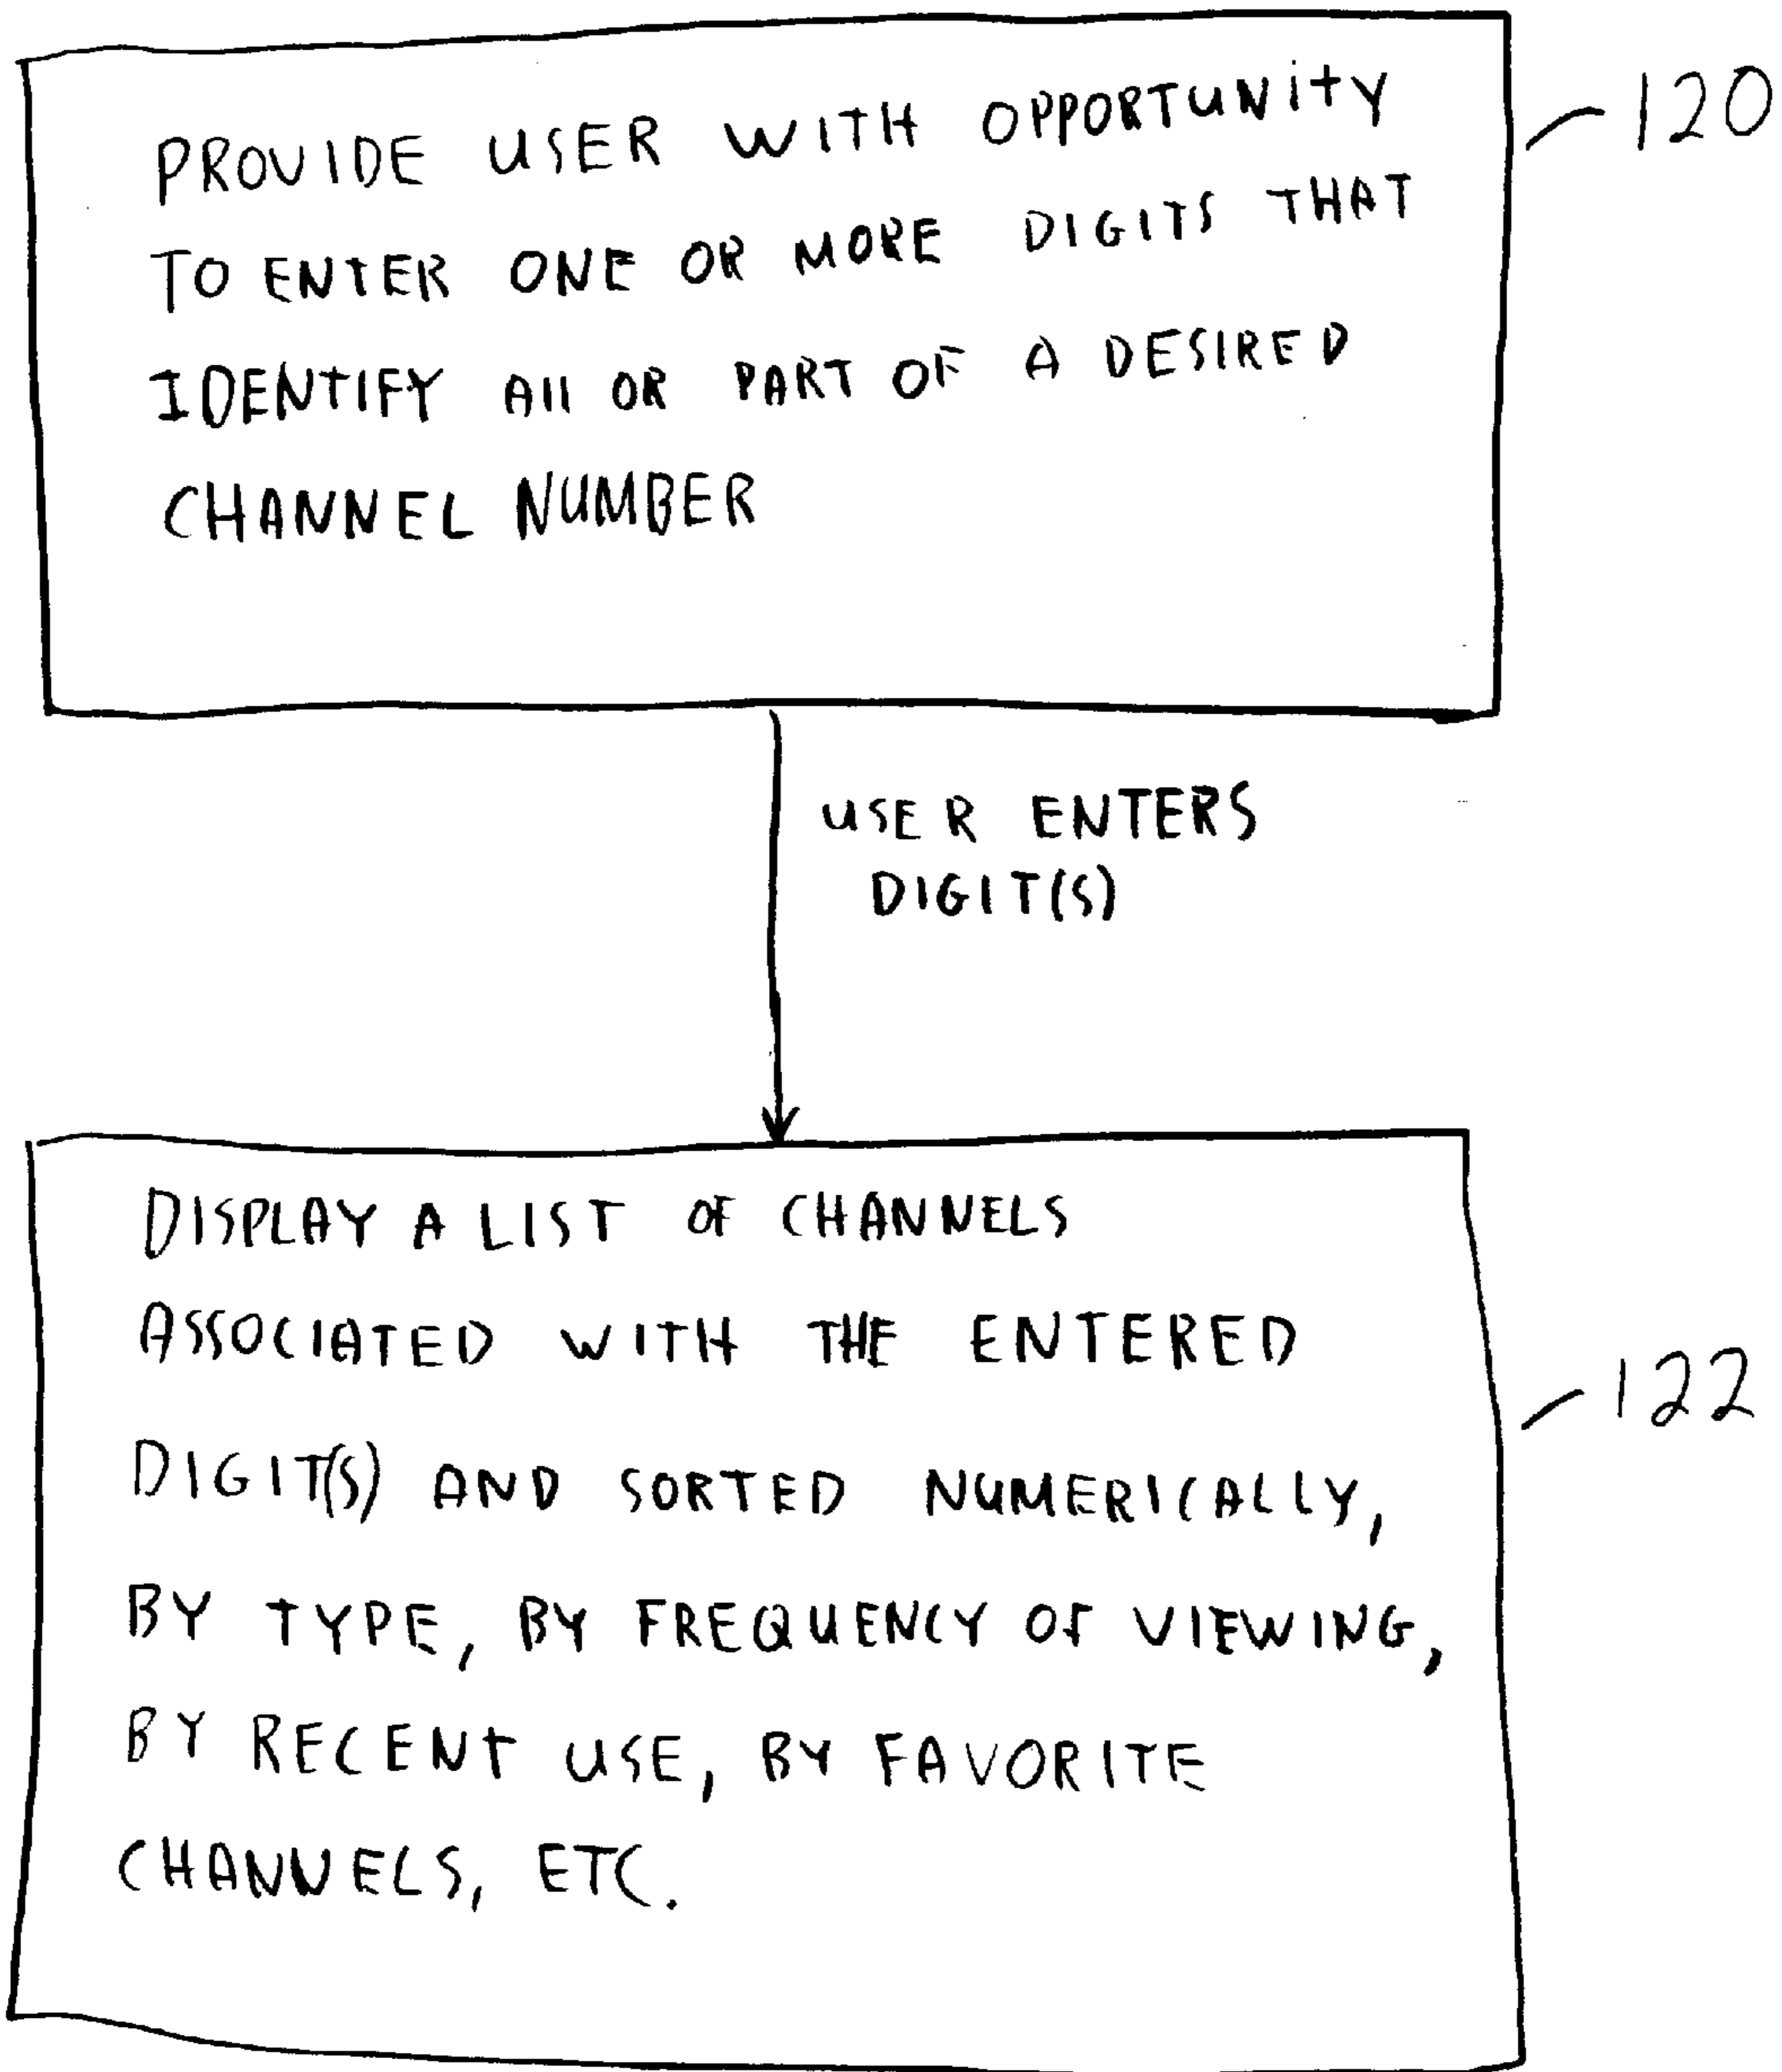 PROVIDE USER WITH OPPORTUNITY
120
TO ENTER ONE OR MORE DIGITS THAT
IDENTIFY All OR PART OF A DESIRED
CHANNEL NUMBER
USER ENTERS
DIGIT(S)
DISPLAY A LIST OF CHANNELS
ASSOCIATED WITH THE ENTERED
122
DIGIT(S) AND SORTED NUMERICALLY,
BY TYPE, BY FREQUENCY OF VIEWING,
BY RECENT USE, BY FAVORITE
CHANNELS, ETC.